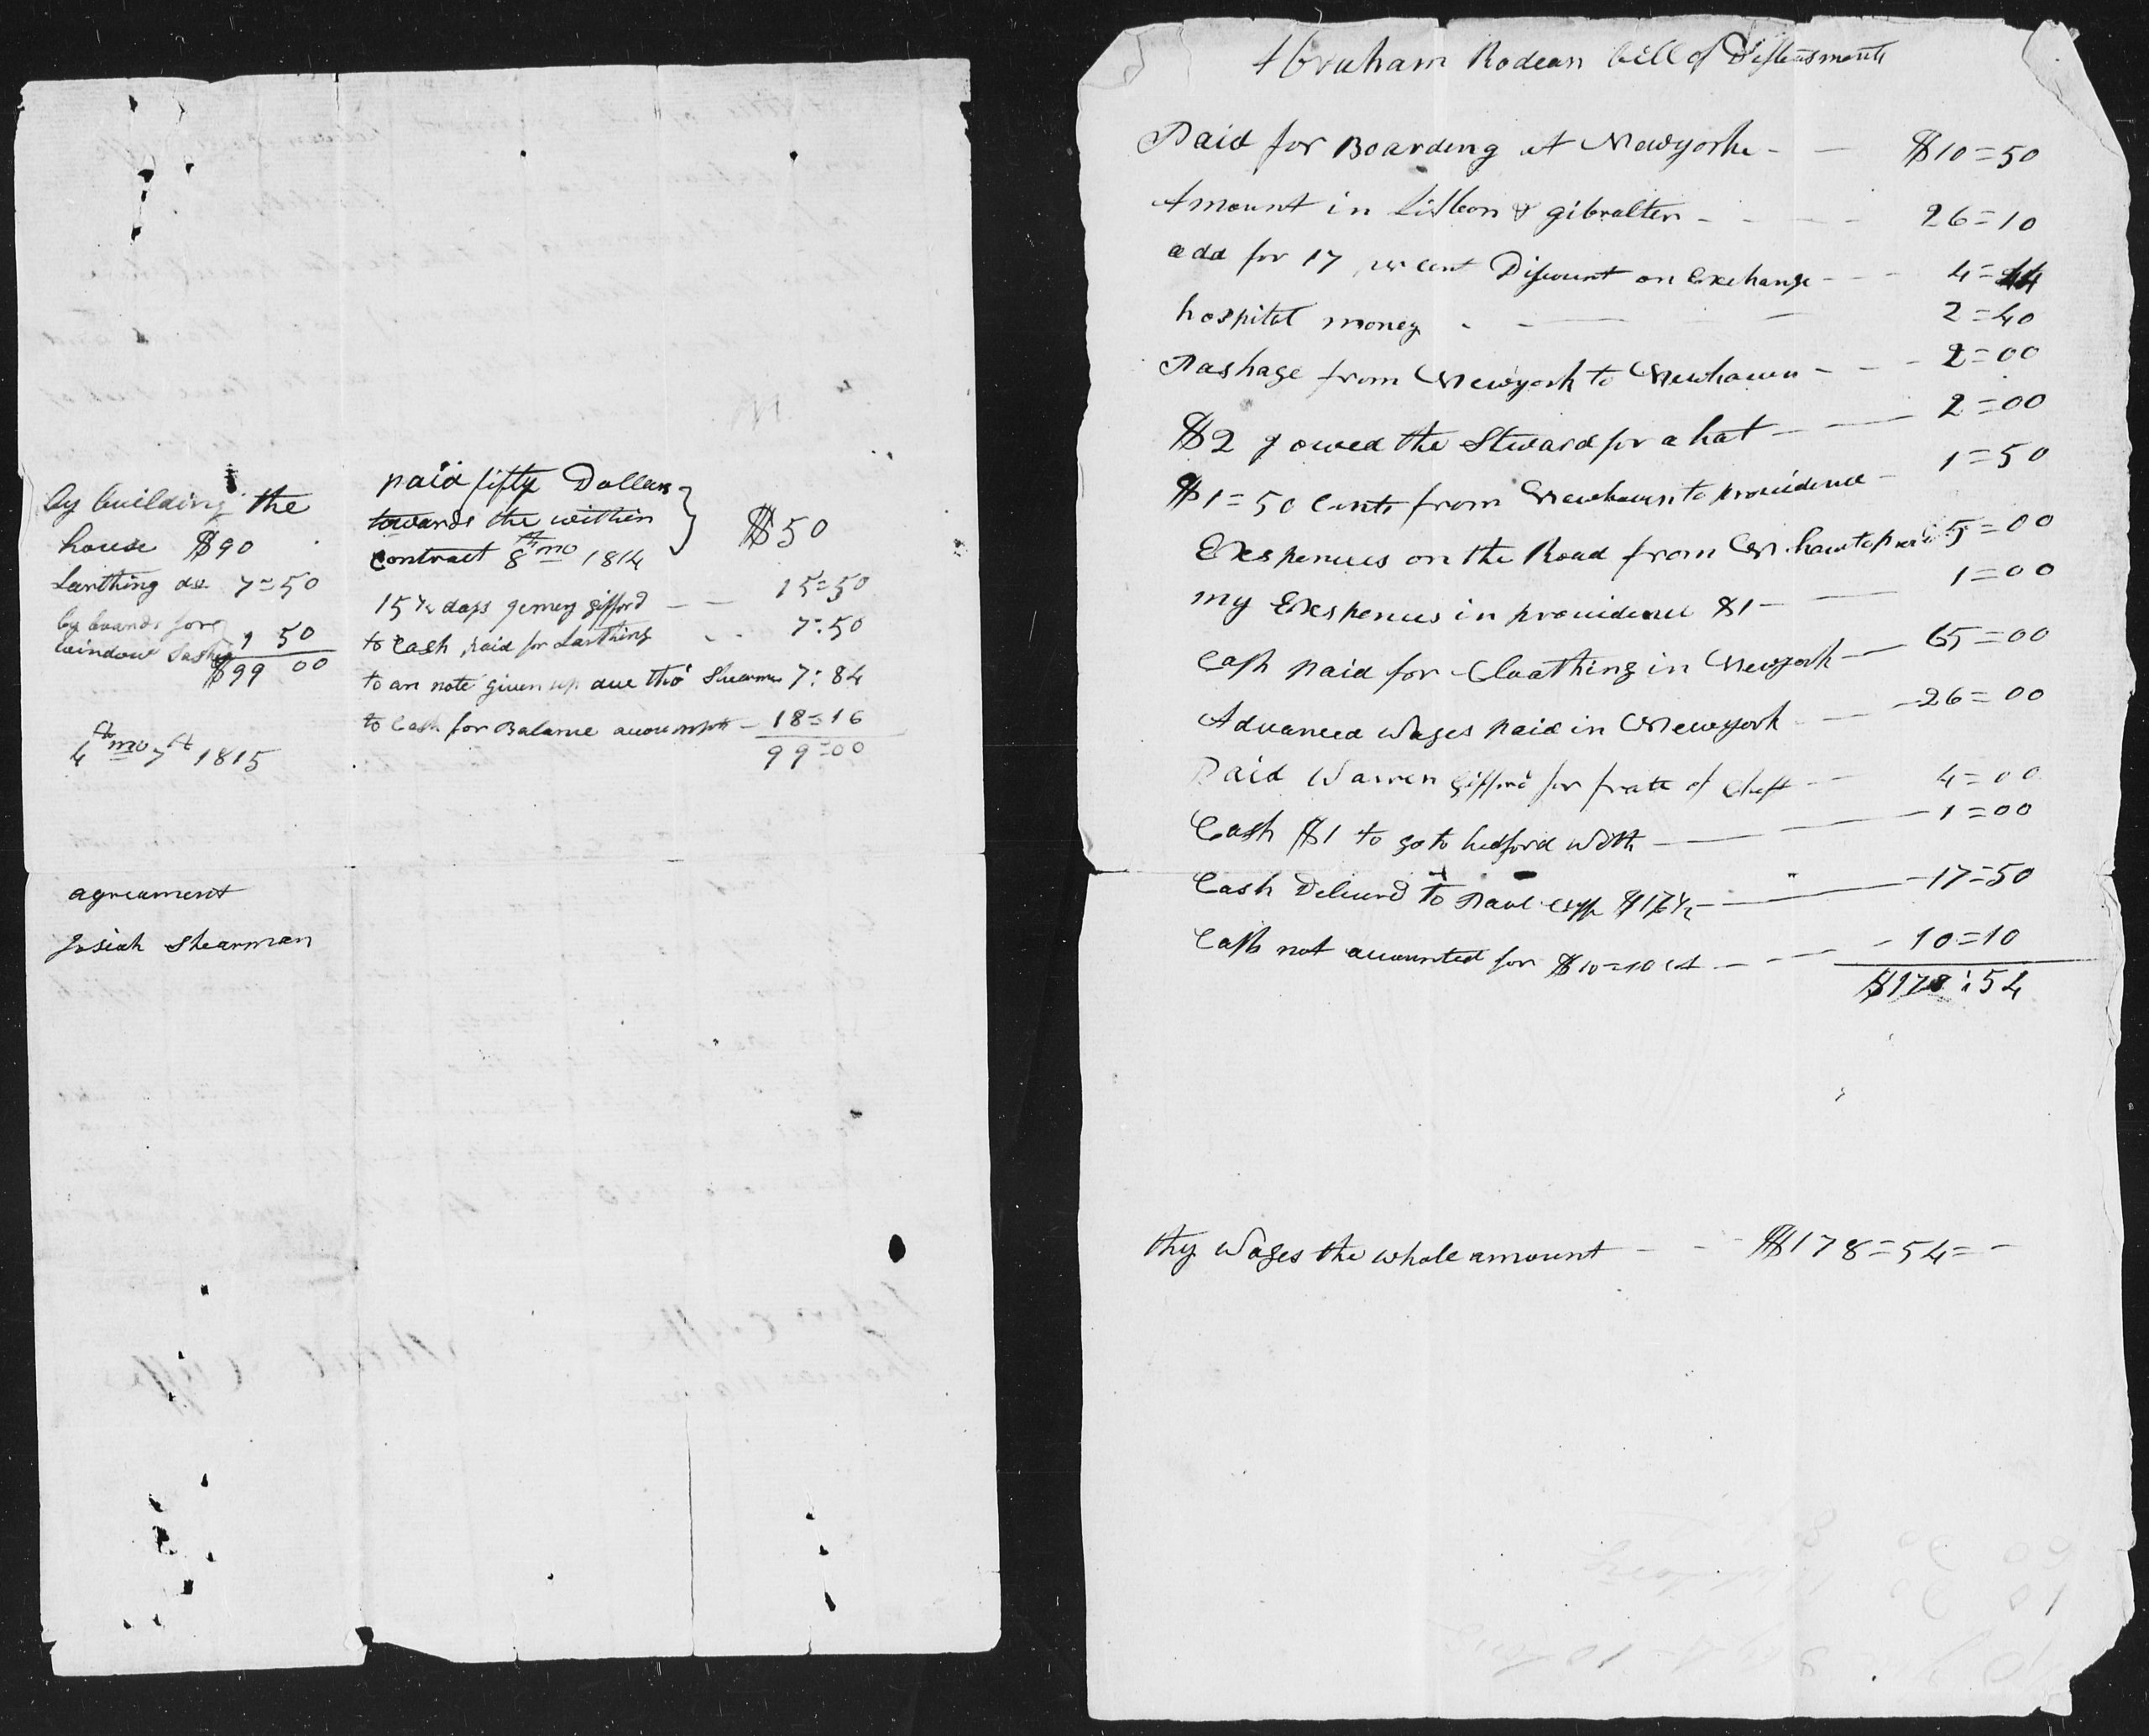 by building the
house $90
Larthing do 7=50
by boards for
window Sashes 1 50
$99 00
4th mo 7th 1815
agreament
Josiah Shearman
paid fifty Dollars
towards the within
contract 8th mo 1814 } $50
15½ days gemery gifford — — 15=50
to Cash paid for Larthing - - 7:50
to an note given up due tho Shearman 7:84
to Cash for Balance accompt — 18=16
99=00
Abraham Rodean bill of Disbursments
Paid for Boarding at Newyorke - — $10=50
Amount in Lisbon & gibralter - - - - 26=10
add for 17 per cent Discount on Exchange - - - 4=44
hospital money - - — - — 2=40
Pashage from Newyork to Newhaven - - - 2=00
$2 I owed the Steward for a hat - — 2=00
$1=50 Cents from Newhaven to providence - 1=50
Exspences on the Road from N. haven to prov 5=00
my Exspences in providence $1 - — 1=00
Cash paid for Cloathing in Newyork — 65=00
Advanced Wages paid in Newyork - — 26=00
Paid Warren Gifford for frate of Chest - - 4=00
Cash $1 to go to bedford with — — 1=00
Cash Deliverd to Paul Cuffe $17½ - — 17=50
Cash not accounted for $10=10 ct - - — 10=10
$178:54
thy Wages the whole amount - - - $178=54= -